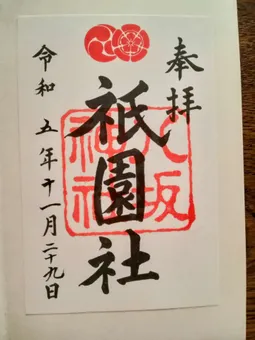 奉拝
祇園社
八坂神社
令和五年十一月二十九日